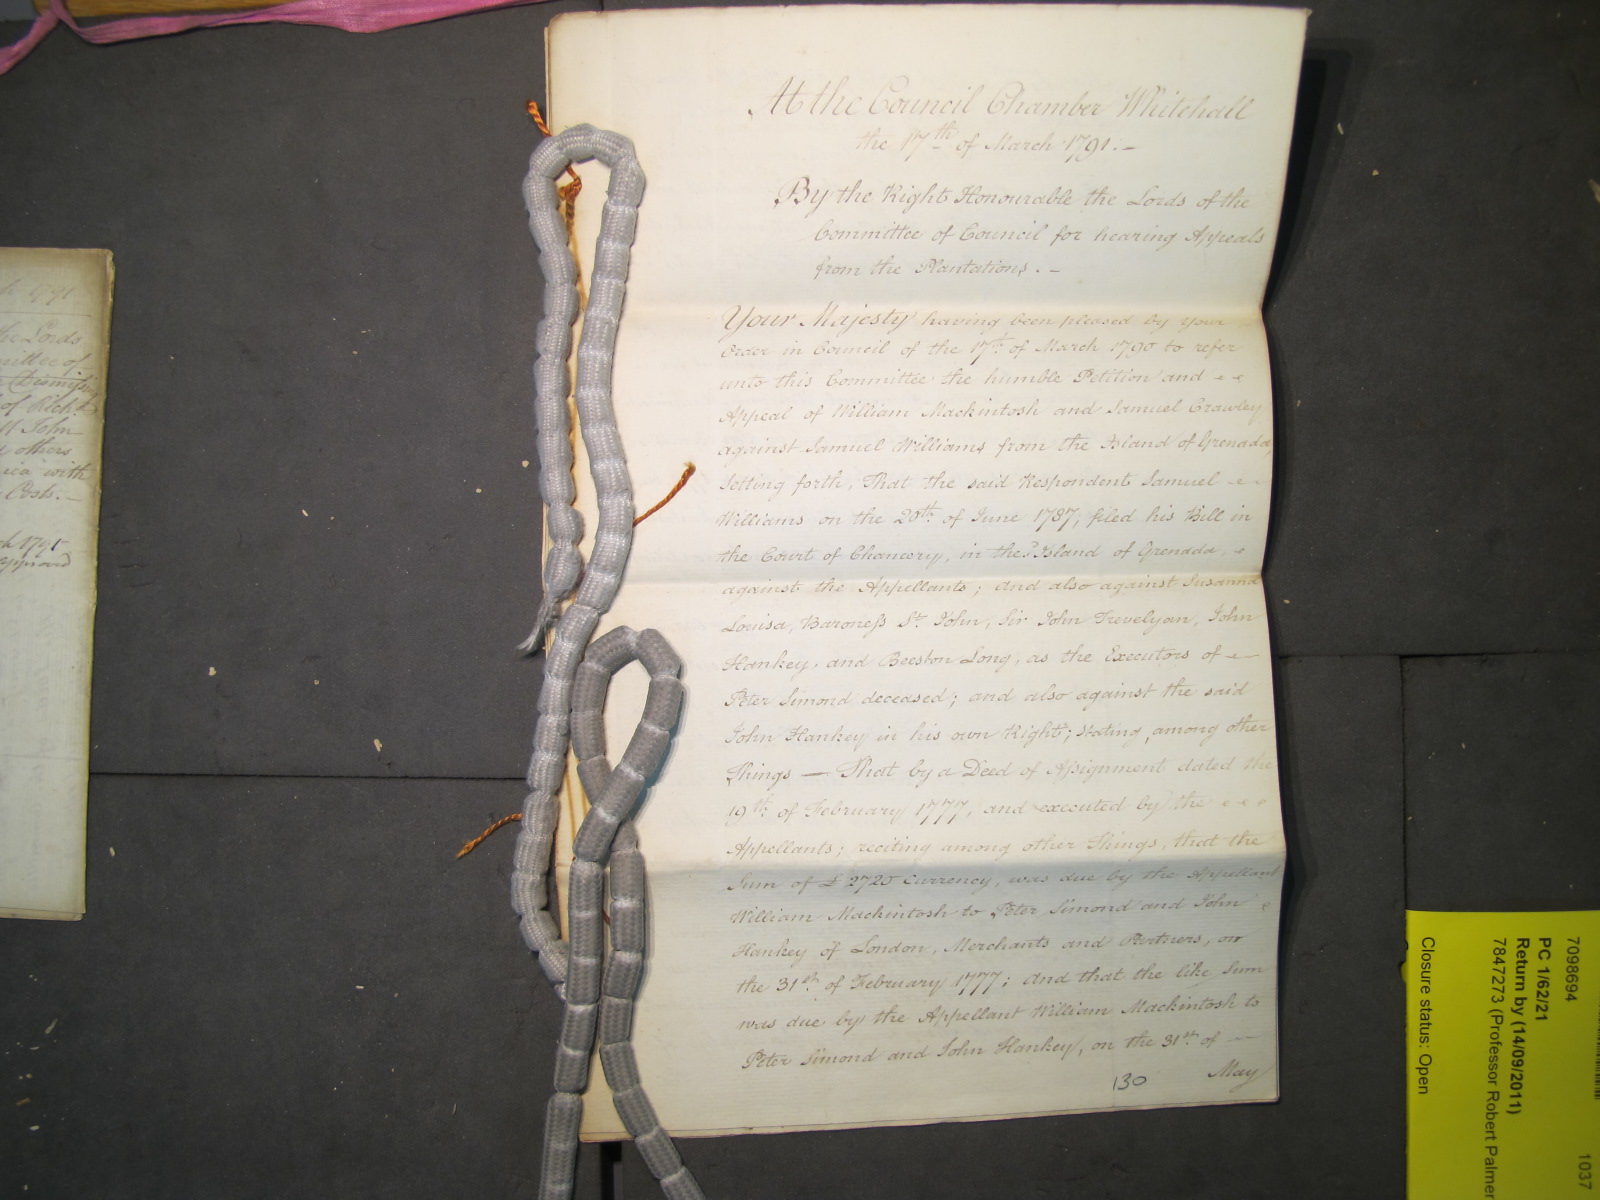 At the Council Chamber Whitehall
the 17th of March 1791.-
By the Right Honourable the Lords of the
Committee of Council for hearing Appeals
from the Plantations. -
Your Majesty having been pleased by Your
Order in Council of the 17th of March 1790 to refer
unto this Committee the humble Petition and
Appeal of William Mackintosh and Samuel Crawley
against Samuel Williams from the Island of Grenada,
Setting forth, That the said Respondent Samuel
Williams on the 20th of June 1787, filed his Bill in
the Court of Chancery, in the Island of Grenada,
against the Appellants; and also against Susanna
Louisa, Baroness St. John, Sir John Trevelyan, John
Hankey, and Beeston Long, as the Executors of
Peter Simond deceased; and also against the said
John Hankey in his own Right; stating, among other
Things — That by a Deed of Assignment dated the
19th of February 1777, and executed by the
Appellants; reciting among other Things, that the
Sum of £2725 Currency, was due by the Appellant
William Mackintosh to Peter Simond and John
Hankey of London, Merchants and Partners, on
the 31st of February 1777; And that the like Sum
was due by the Appellant William Mackintosh to
Peter Simond and John Hankey, on the 31st of
May
130
the Lords
mittee of
Dismiss
of Richd
John
others
ica with
Costs. -
h 1791
approved
7098694
1037
PC 1/62/21
Return by (14/09/2011)
7847273 (Professor Robert Palmer
Closure status: Open